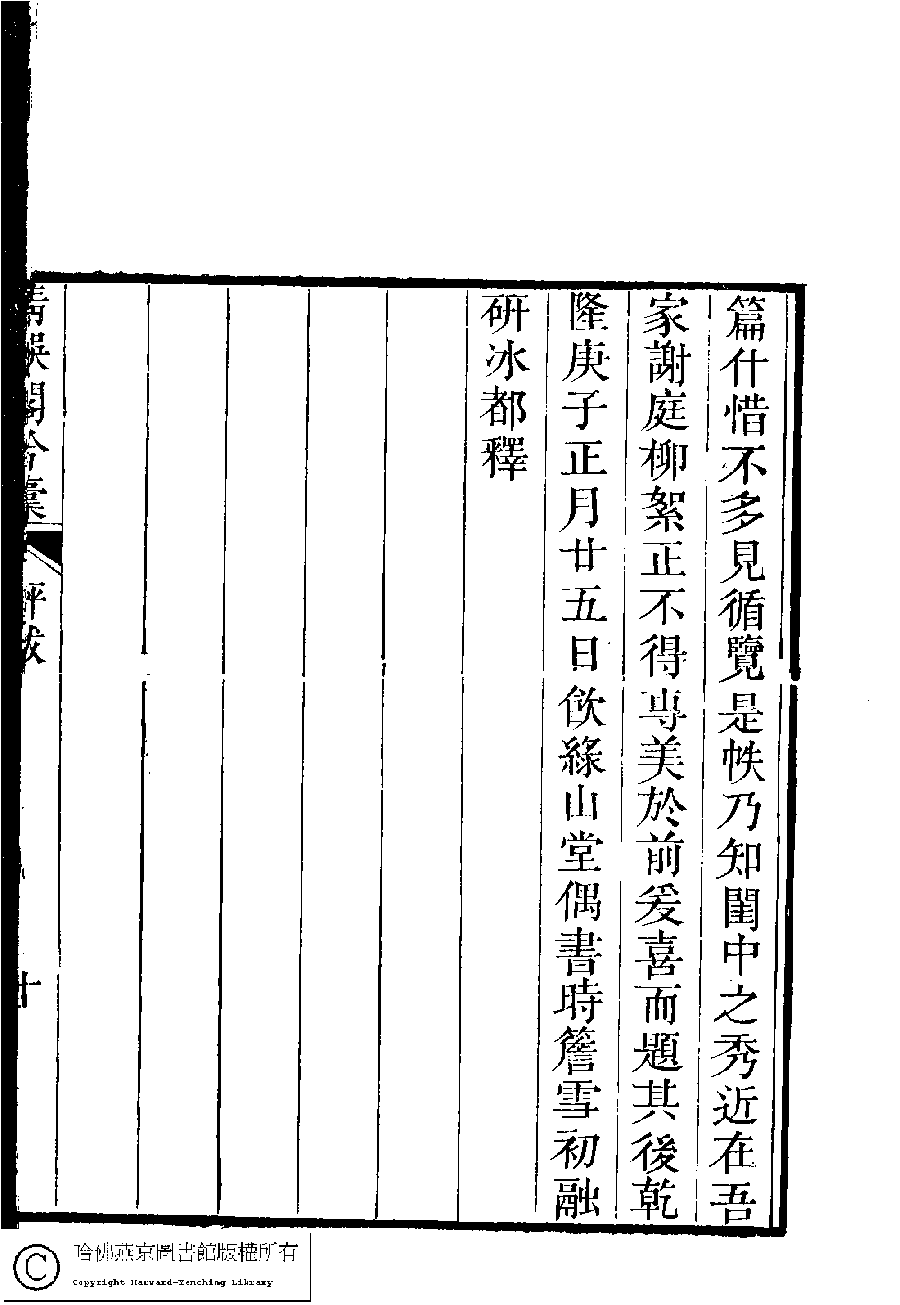 篇什惜不多見循覽是帙乃知閨中之秀近在吾
家謝庭柳絮正不得專美於前爰喜而題其後乾
隆庚子正月廿五日飲綠山堂偶書時簷雪初融
研冰都釋
清娛閣合稾
評跋
十
哈佛燕京圖書館版權所有
Copyright Harvard-Yenching Library